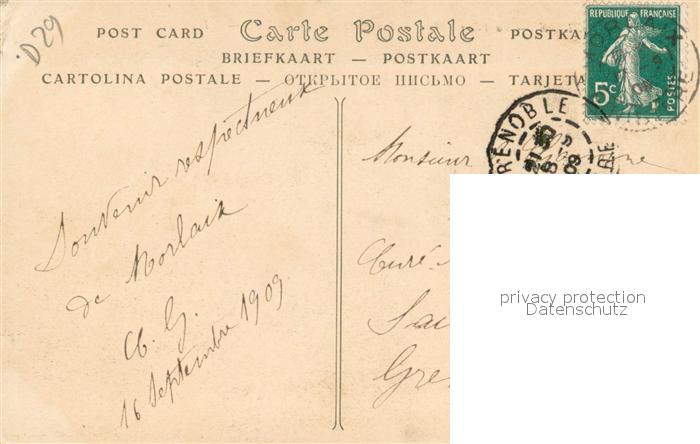 D29
POST CARD — Carte Postale — POSTKA
BRIEFKAART — POSTKAART
CARTOLINA POSTALE — ОТКРЫТОЕ ПИСЬМО — TARJETA
REPUBLIQUE FRANÇAISE
5c
POSTES
GRENOBLE
09
Souvenir respectueux
de Morlaix
16 Septembre 1909
Monsieur
Curé
Sai
Gre
privacy protection
Datenschutz